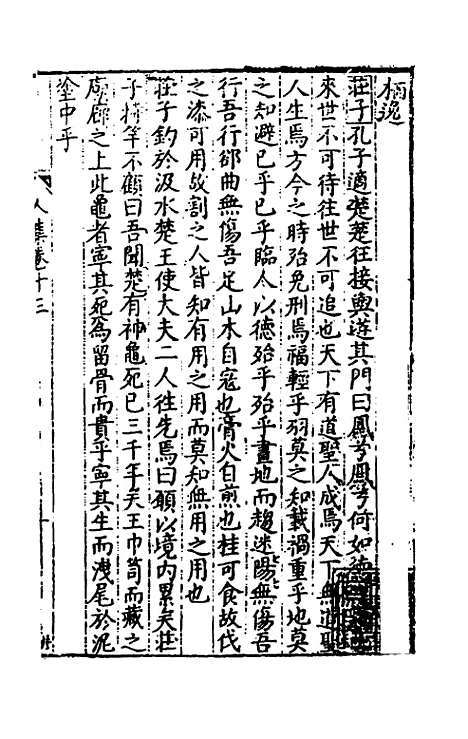 栖逸
莊子孔子適楚楚狂接輿遊其門曰鳳兮鳳兮何如德
來世不可待往世不可追也天下有道聖人成焉天下無道聖
人生焉方今之時殆免刑焉福輕乎羽莫之知載禍重乎地莫
之知避已乎已乎臨人以德殆乎殆乎畫地而趨迷陽無傷吾
行吾行郤曲無傷吾足山木自寇也膏火自煎也桂可食故伐
之漆可用故割之人皆知有用之用而莫知無用之用也
莊子釣於汲水楚王使大夫二人往先焉曰願以境內累夫莊
子持竿不顧曰吾聞楚有神龜死已三千年矣王巾笥而藏之
廟廊之上此龜者寧其死為留骨而貴乎寧其生而洩尾於泥
塗中乎
人集卷十三